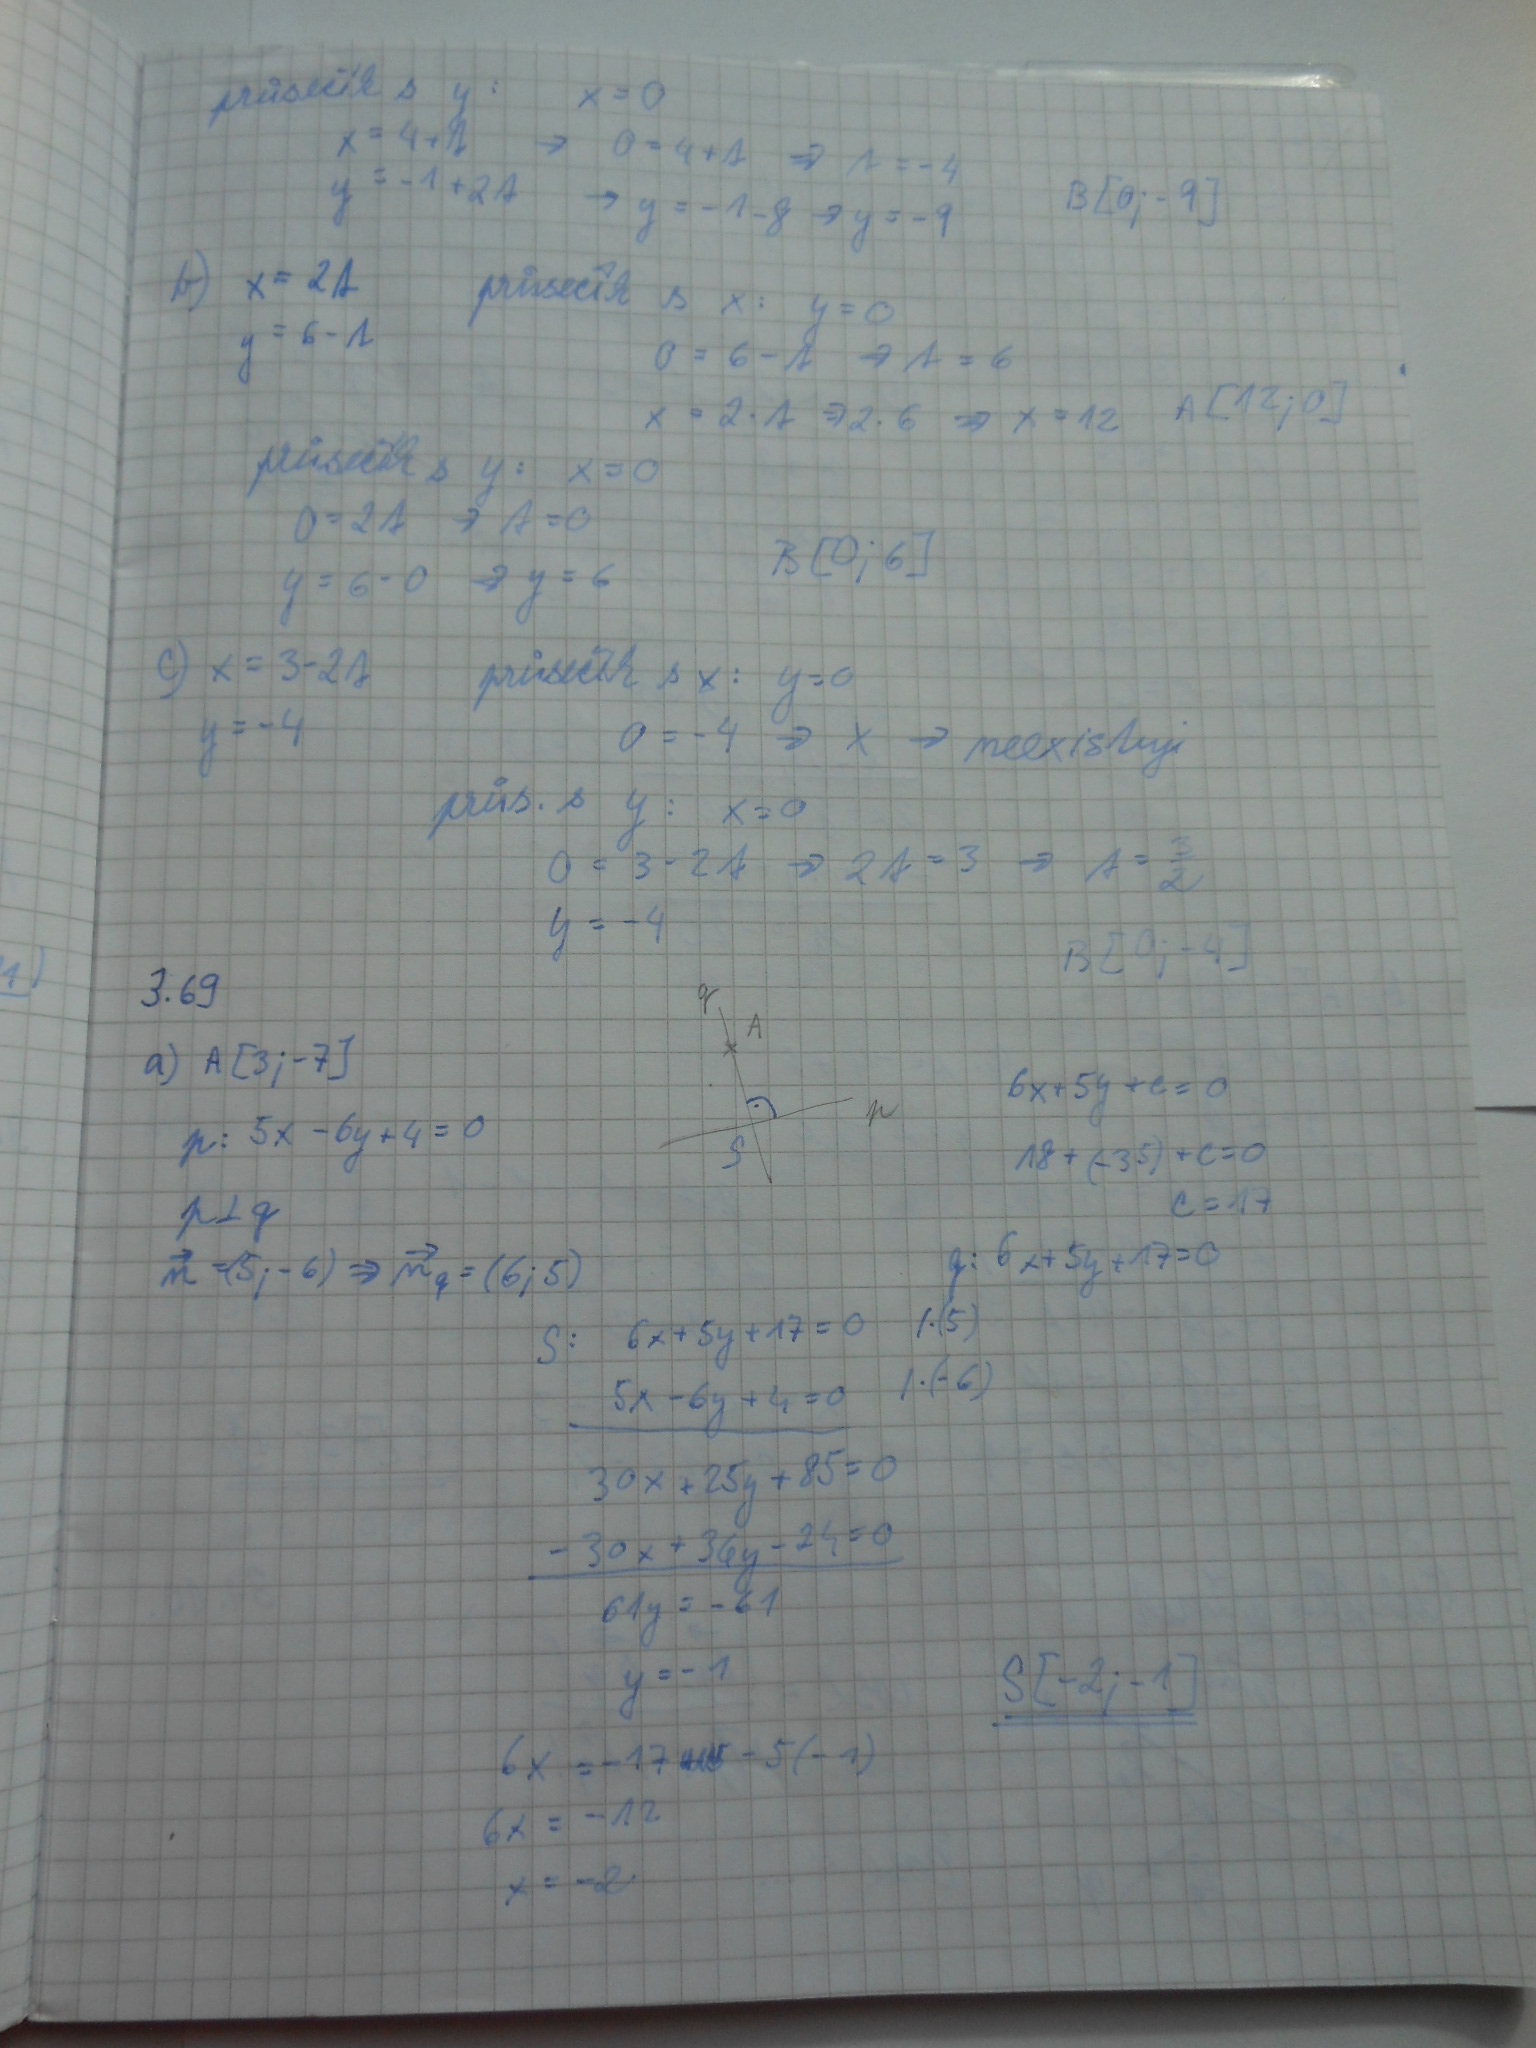 průsečík s y: x=0
x=4+t → 0=4+t ⇒ t=-4
y=-1+2t → y=-1-8 → y=-9 B[0;-9]
b) x=2t průsečík s x: y=0
y=6-t 0=6-t → t=6
x=2·t ⇒ 2·6 ⇒ x=12 A[12;0]
průsečík s y: x=0
0=2t → t=0
y=6-0 → y=6 B[0;6]
c) x=3-2t průsečík s x: y=0
y=-4 0=-4 ⇒ X → neexistuji
průs. s y: x=0
0=3-2t → 2t=3 → t=3/2
y=-4
B[0;-4]
1)
3.69
q
A
a) A[3;-7]
p: 5x-6y+4=0
p
S
p⊥q
n⃗=(5;-6) ⇒ n⃗q=(6;5)
6x+5y+c=0
18+(-35)+c=0
c=17
q: 6x+5y+17=0
S: 6x+5y+17=0 /·(5)
5x-6y+4=0 /·(-6)
30x+25y+85=0
-30x+36y-24=0
61y=-61
y=-1
S[-2;-1]
6x=-17 -5(-1)
6x=-12
x=-2